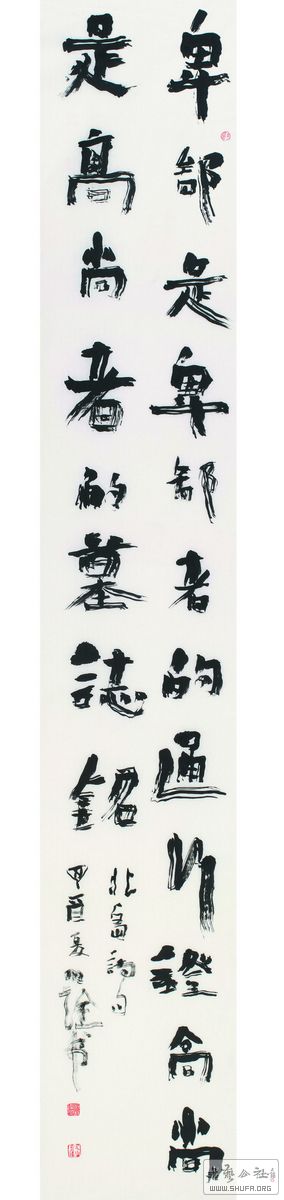 卑鄙是卑鄙者的通行證高尚
是高尚者的墓誌銘
北島詩
酉夏
WWW.SHUFA.ORG